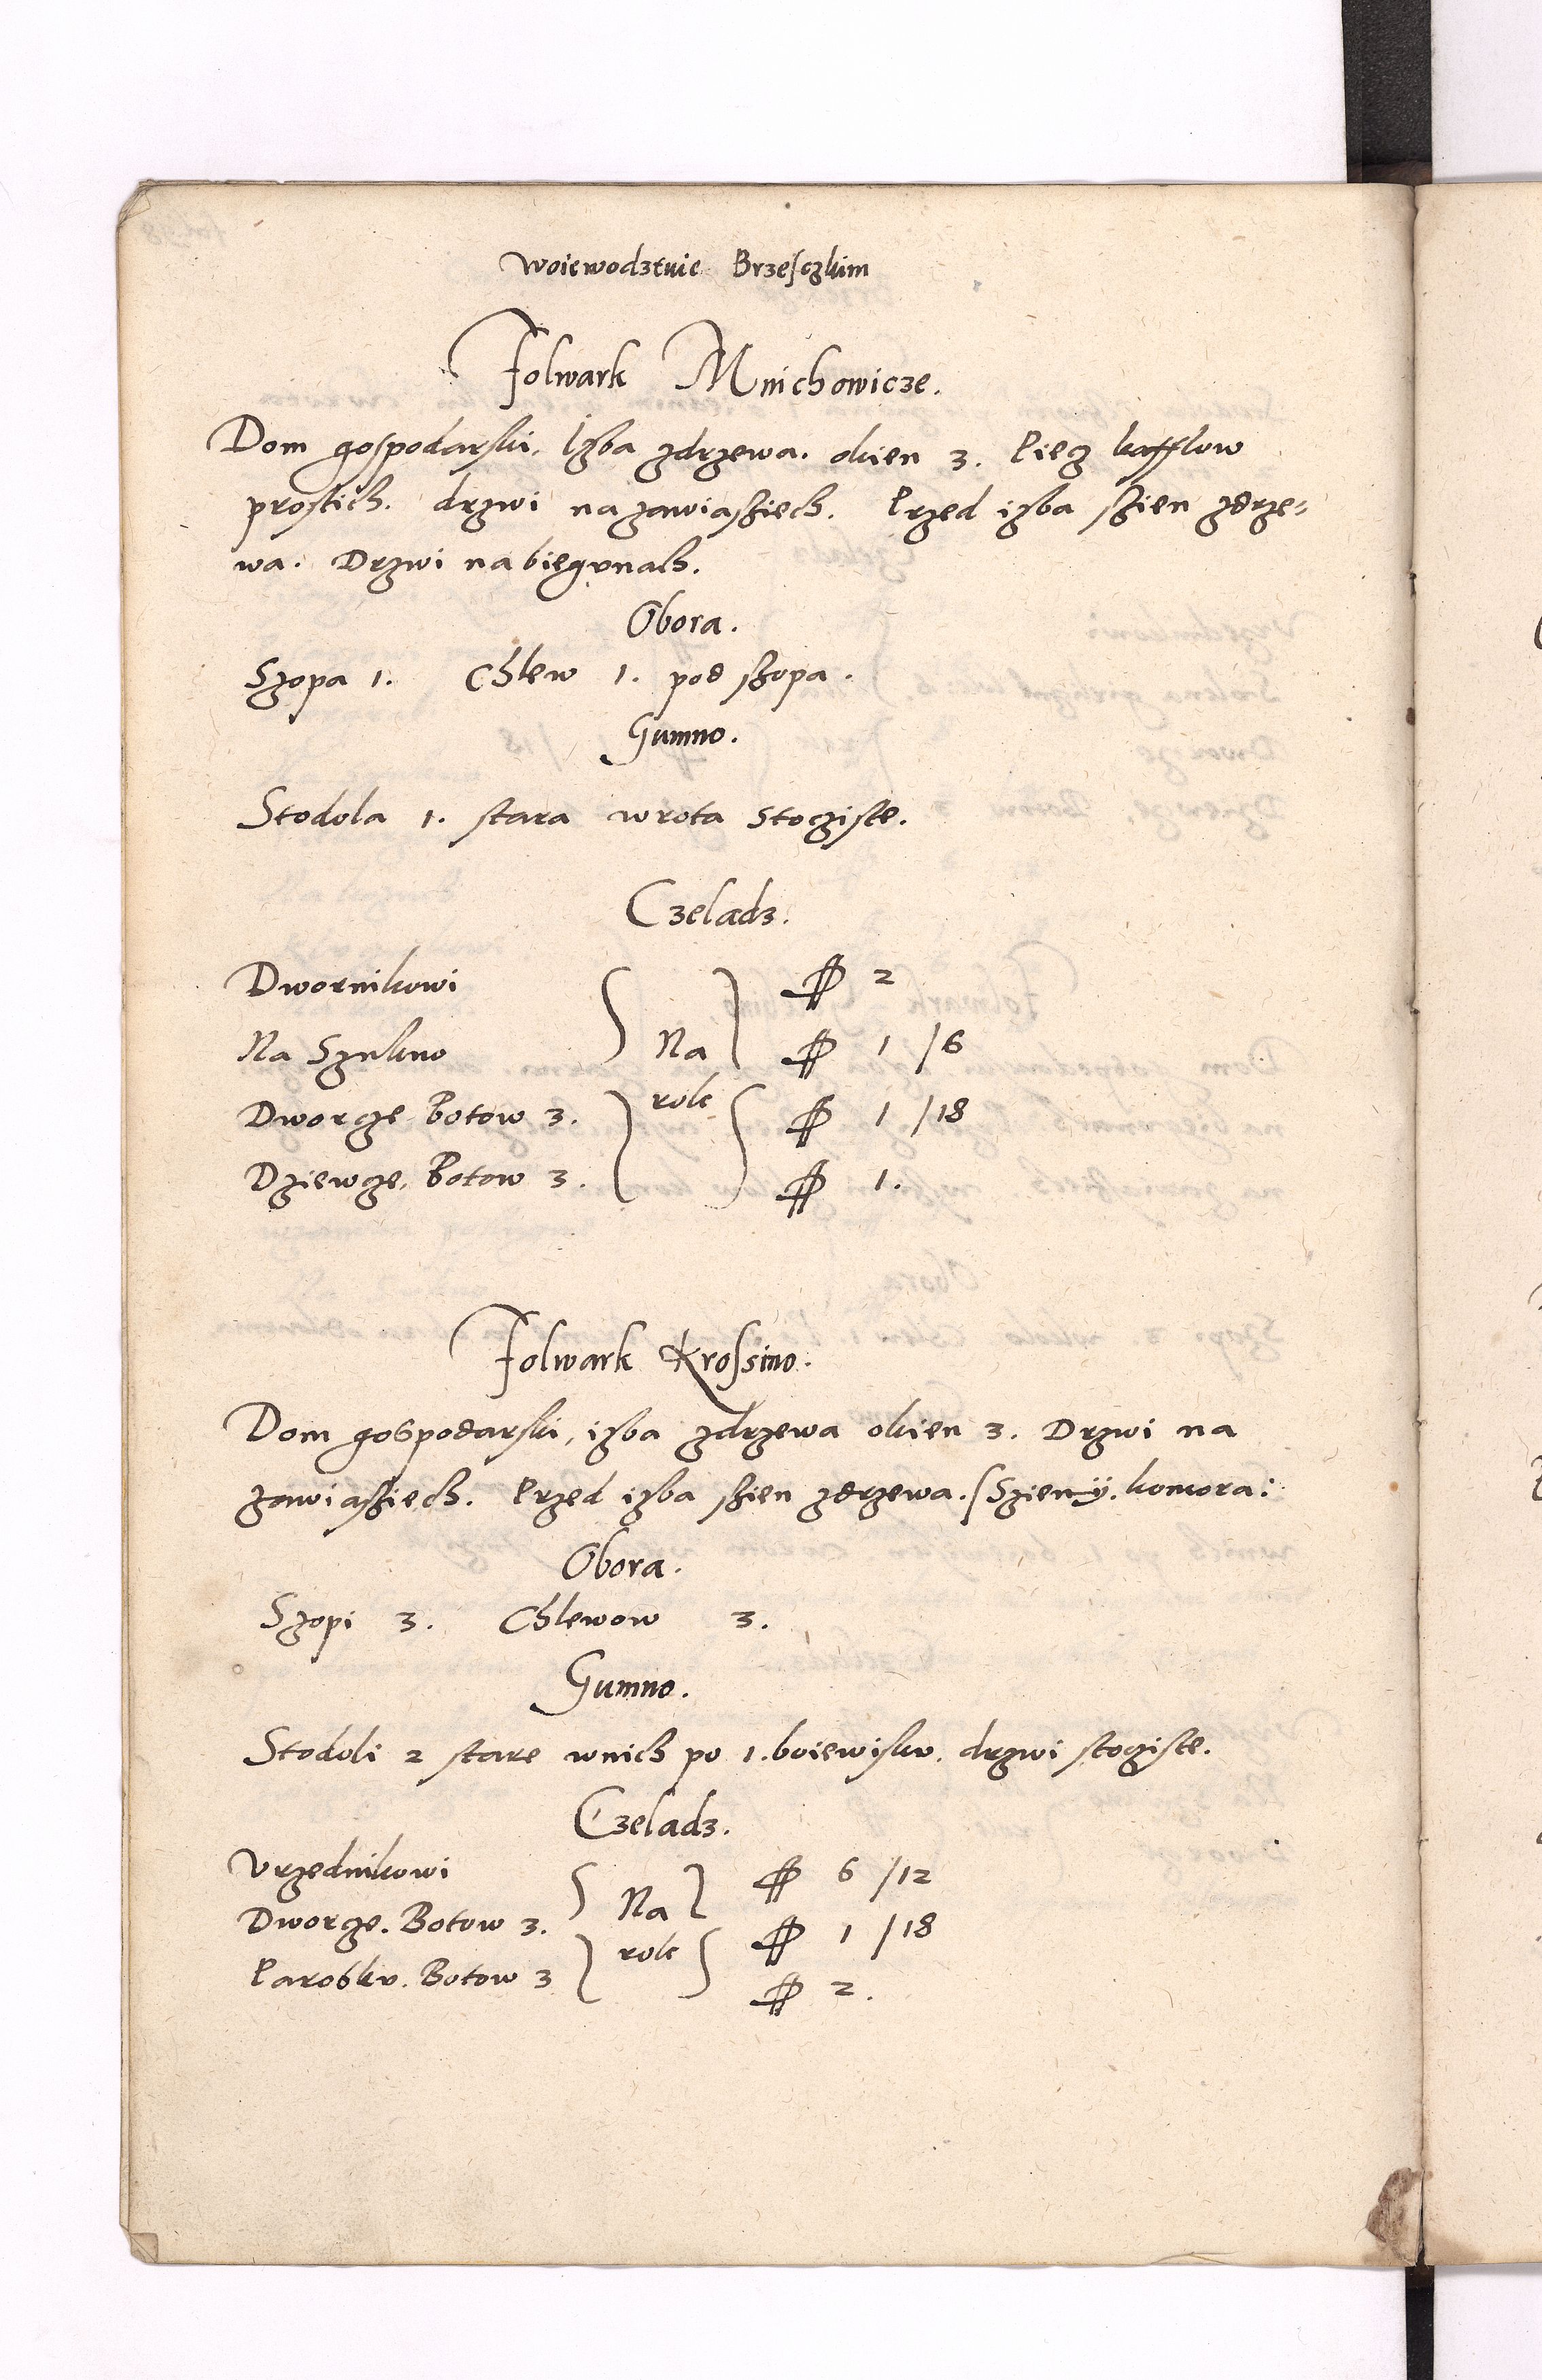 Woiewodztwie Brzesczkim
Folwark Mnichowicze.
Dom gospodarski, Izba zdrzewa. okien 3. Piecz kafflow
prostich. drzwi na zawiasziech. Przed izba szien zdrze-
wa. Drzwi na biegunach.
Obora.
Szopa 1. Chlew 1. pod szopa.
Gumno.
Stodola 1. stara wrota stocziste.
Czeladz.
Dwornikowi ₰ 2
Na Szukno Na ₰ 1 /6
Dworcze Botow 3. role ₰ 1 /18
Dziewcze, Botow 3. ₰ 1.
Folwark Krossino.
Dom gospodarski, izba zdrzewa okien 3. Drzwi na
zawiasziech. Przed izba szien zdrzewa. Szieni y. komora:
Obora.
Szopi 3. Chlewow 3.
Gumno.
Stodoli 2 stare wnich po 1. boiewisku. drzwi stocziste.
Czeladz.
Vrzednikowi ₰ 6 /12
Dworcze. Botow 3. Na ₰ 1 /18
Parobku. Botow 3 role ₰ 2.